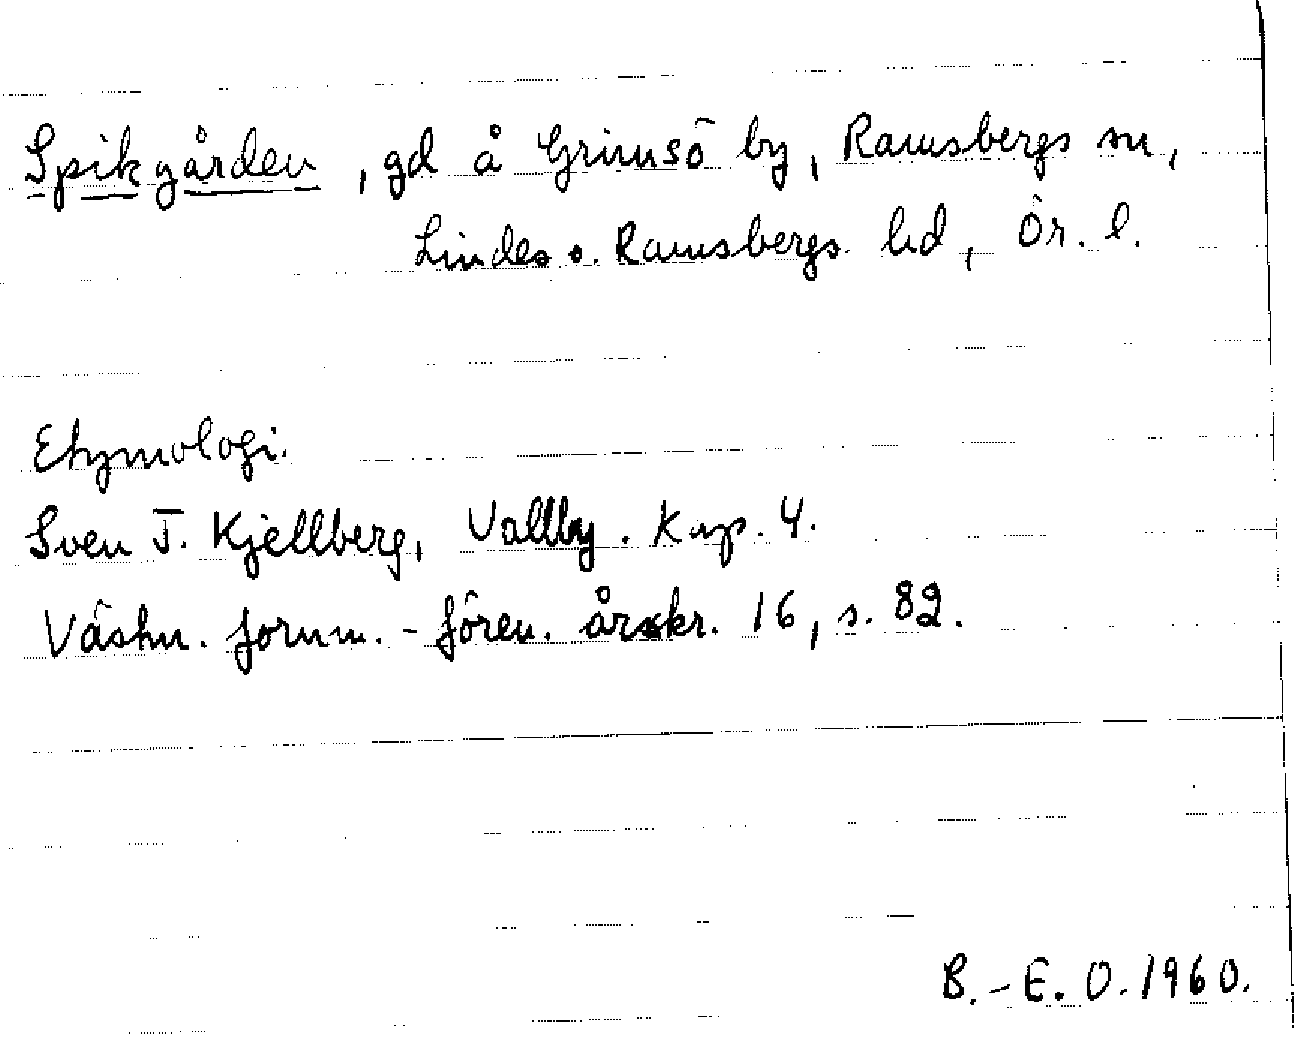 Spikgården, gd å Grimsö by, Ramsbergs sn,
Lindes o. Ramsbergs hd, Ör. l.
Etymologi.
Sven T. Kjellberg, Vallby. Kap. 4.
Västm. fornm.-fören. årsskr. 16, s. 82.
B.-E. O. 1960.